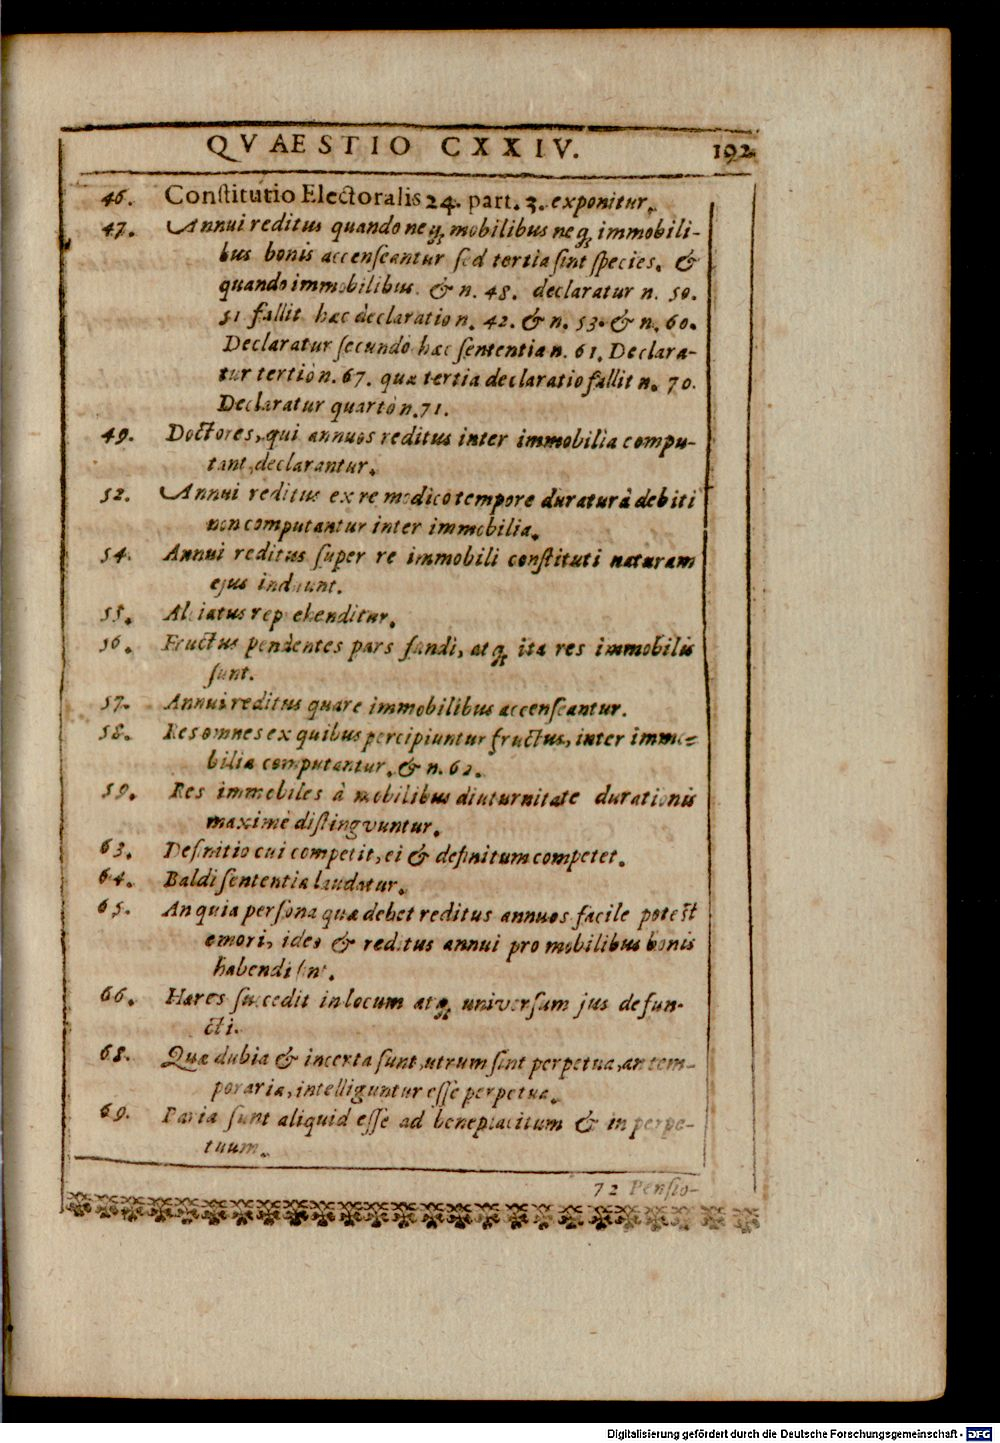 QVAESTIO CXXIV. 192
46. Constitutio Electoralis 24. part. 3. exponitur.
47. Annui reditus quando neq; mobilibus neq; immobili-
bus bonis accenseantur sed tertia sint species. &
quando immobilibus. & n. 48. declaratur n. 50.
51 fallit hæc declaratio n. 42. & n. 53. & n. 60.
Declaratur secundò hæc sententia n. 61. Declara-
tur tertiò n. 67. quæ tertia declaratio fallit n. 70.
Declaratur quartò n. 71.
49. Doctores, qui annuos reditus inter immobilia compu-
tant, declarantur.
52. Annui reditus ex re modico tempore duratura debiti
non computantur inter immobilia.
54. Annui reditus super re immobili constituti naturam
ejus induunt.
55. Alciatus reprehenditur.
56. Fructus pendentes pars fundi, atq; ita res immobilis
sunt.
57. Annui reditus quare immobilibus accenseantur.
58. Res omnes ex quibus percipiuntur fructus, inter immo-
bilia computantur. & n. 62.
59. Res immobiles à mobilibus diuturnitate durationis
maximè distingvuntur.
63. Definitio cui competit, ei & definitum competet.
64. Baldi sententia laudatur.
65. An quia persona quæ debet reditus annuos facile potest
emori, ideo & reditus annui pro mobilibus bonis
habendi sint.
66. Hæres succedit in locum atq; universum jus defun-
cti.
68. Quæ dubia & incerta sunt, utrum sint perpetua, an tem-
poraria, intelliguntur esse perpetua.
69. Paria sunt aliquid esse ad beneplacitum & in perpe-
tuum.
72 Pensio-
Digitalisierung gefördert durch die Deutsche Forschungsgemeinschaft - DFG